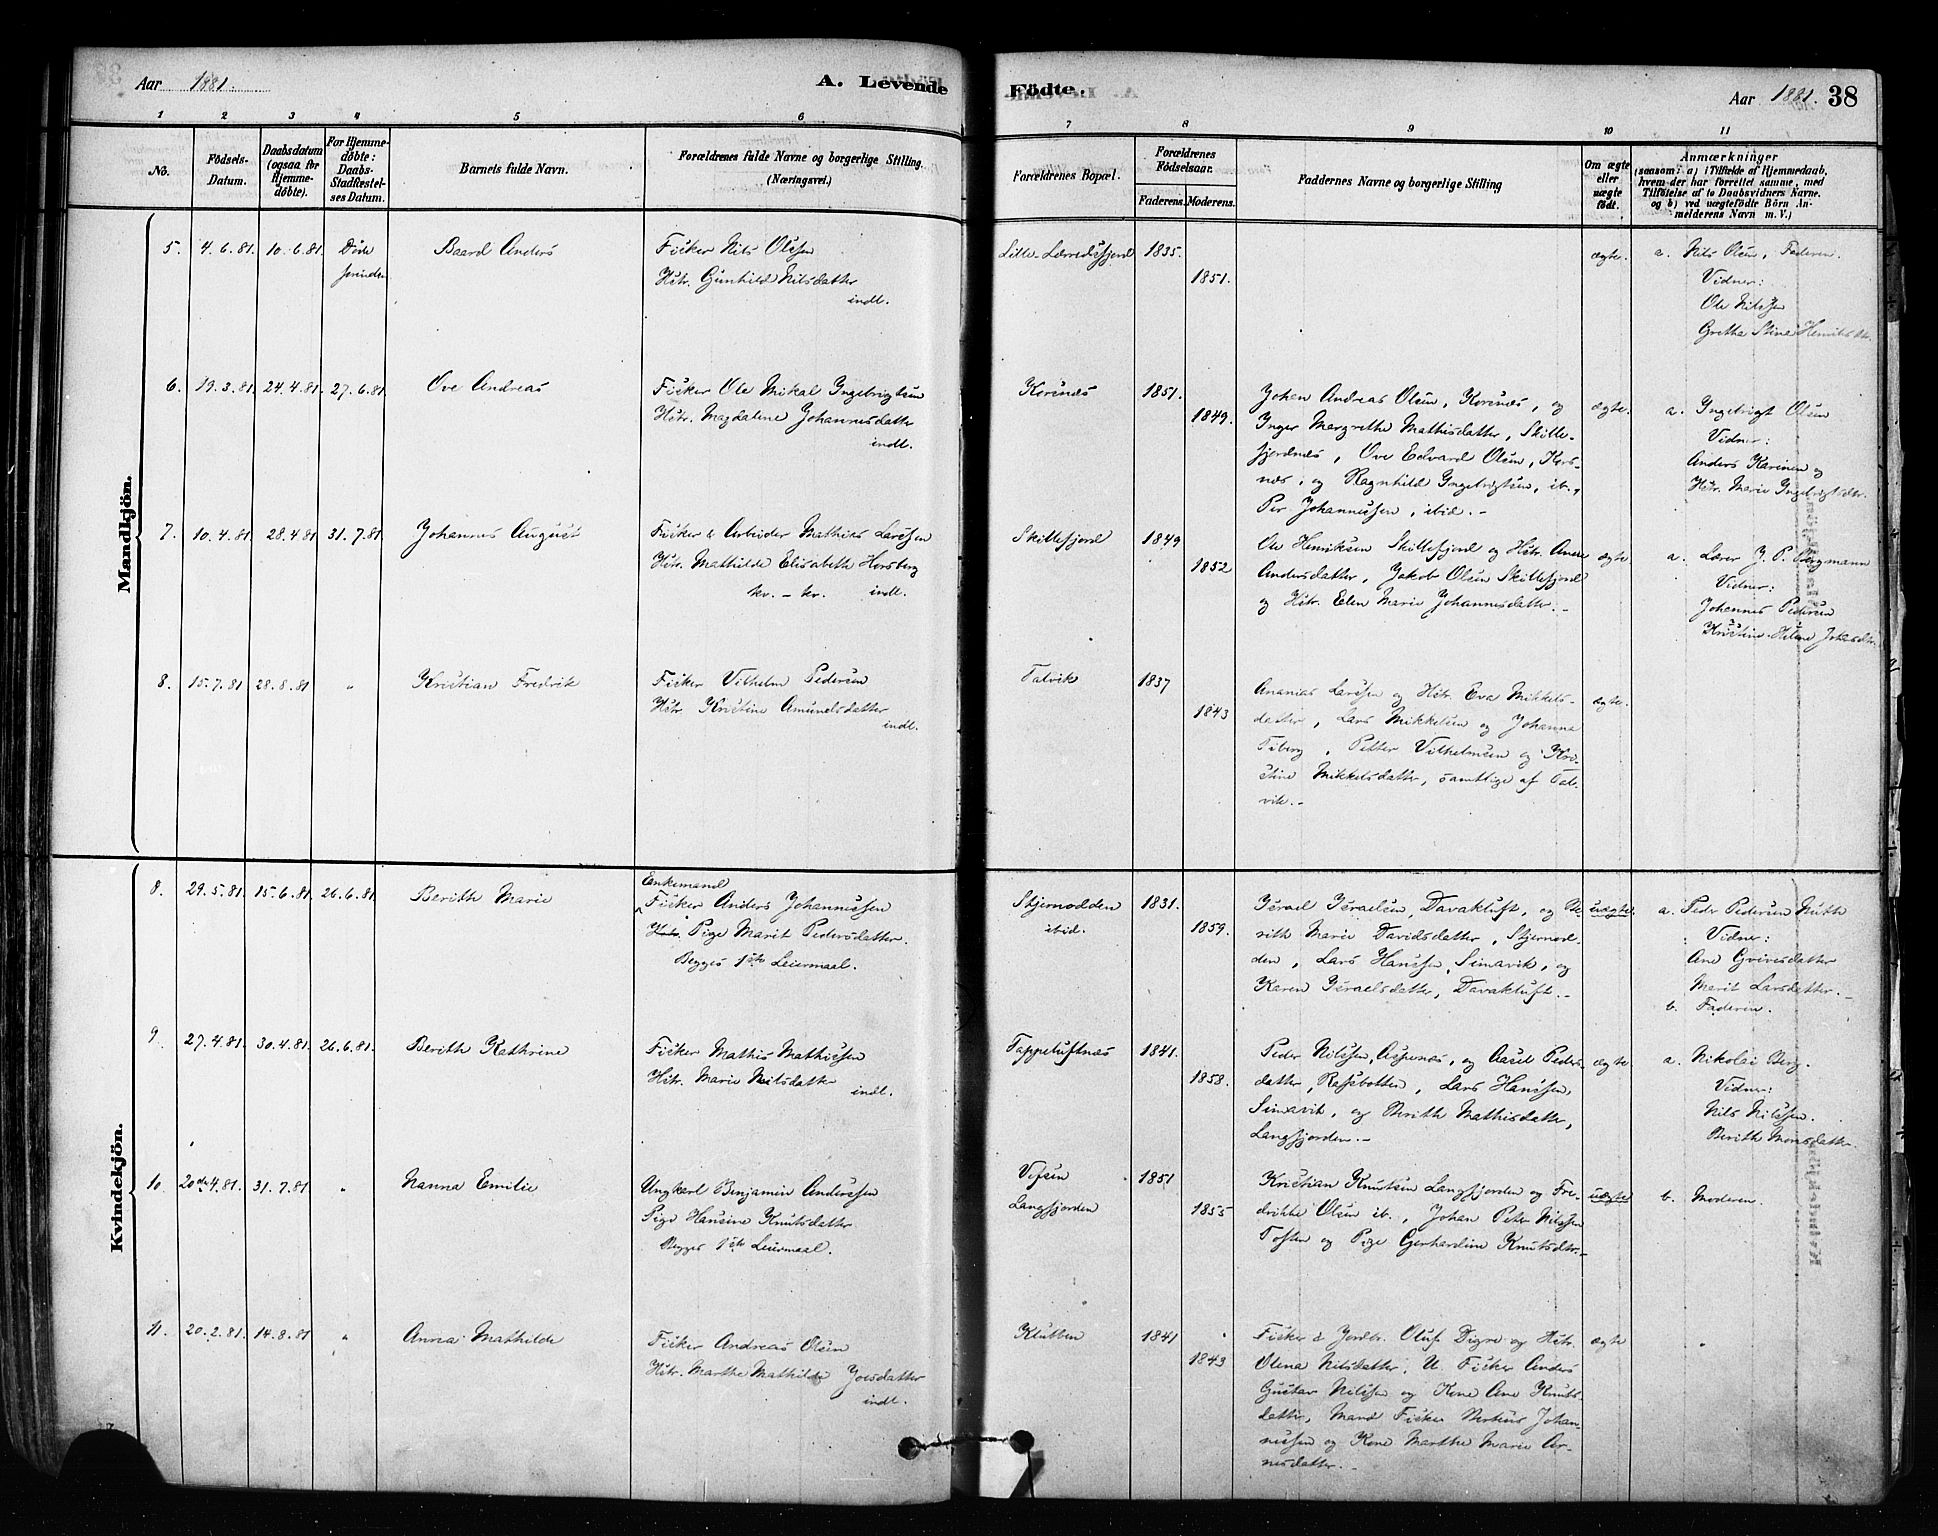 Aar 1881.
A. Levende
1 2 3 4 5 6
No.
Födsels-
Datum.
Daabsdatum
(ogsaa for
Hjemme-
döbte).
For Hjemme-
döbte:
Daabs-
Stadfæstel-
ses Datum.
Barnets fulde Navn.
Forældrenes fulde Navne og borgerlige Stilling.
(Næringsvei.)
Mandkjön.
5. 4.6.81. 10.6.81. Döde
forinden
Baard Anders
Fisker Nils Olsen
Hstr. Gunhild Nilsdatter
indl.
6. 19.3.81. 24.4.81. 27.6.81.
Ove Andreas
Fisker Ole Mikal Ingebrigtsen
Hstr. Magdalene Johannesdatter
indl.
7. 10.4.81 28.4.81 31.7.81.
Johannes August
Fisker & Arbeider Mathias Larssen
Hstr. Mathilde Elisabeth Horsberg
kv. – kv. indl.
8. 15.7.81 28.8.81 "
Kristian Fredrik
Fisker Vilhelm Pedersen
Hstr. Kristine Amundsdatter
indl.
Kvindekjön.
8. 29.5.81. 15.6.81. 26.6.81.
Berith Marie
Enkemand
Fisker Anders Johannessen
Hstr. Pige Marit Pedersdatter.
Begges 1ste Leiermaal.
9. 27.4.81. 30.4.81. 26.6.81.
Berith Kathrine
Fisker Mathis Mathissen
Hstr. Marie Nilsdatter
indl.
10. 20de 4.81. 31.7.81 "
Nanna Emilie
Ungkarl Benjamin Anderssen
Pige Hansine Knutsdatter
Begges 1ste Leiermaal.
11. 20.2.81. 14.8.81 "
Anna Mathilde
Fisker Andreas Olsen
Hstr. Marthe Mathilde Joesdatter
indl.
Födte.
Aar 1881. 38
7 8 9 10 11
Forældrenes Bopæl.
Forældrenes
Födselsaar.
Faderens. Moderens.
Faddernes Navne og borgerlige Stilling
Om ægte
eller
uægte
födt.
Anmærkninger
(saasom: a) i Tilfælde af Hjemmedaab,
hvem der har forrettet samme, med
Tilföielse af to Daabsvidners Navne.
og b) ved uægtefödte Börn An-
melderens Navn m. V.)
Lille-Lerredsfjord 1835.
1851.
ægte.
a. Nils Olsen, Faderen.
Vidner:
Ole Nilssen
Grethe Stine Henriksdtr.
Korsnæs 1851.
1849.
Johan Andreas Olsen, Korsnæs, og
Inger Margrethe Mathisdatter, Skille-
fjordnæs, Ove Edvard Olsen, Kors-
næs, og Ragnhild Ingebrigtsen, ib.,
Per Johannessen, ibid. –
ægte.
a. Ingebrigt Olsen
Vidner:
Anders Karinen og
Hstr. Marie Ingebrigtsdtr.
Skillefjord 1849
1852
Ole Henriksen Skillefjord og Hstr. Anne
Andersdatter, Jakob Olsen Skillefjord
og Hstr. Elen Marie Johannesdatter. –
ægte
a. Lærer J. P. Bergmann
Vidner:
Johannes Pedersen
Kristine Helene Johasdtr.
Talvik 1837
1843
Ananias Larssen og Hstr. Eva Mikkels-
datter, Lars Mikkelsen og Johanna
Fiberg, Petter Vilhelmsen og Kri-
stine Mikkelsdatter, samtlige af Tal-
vik. –
ægte.
Stjernodden 1831.
ibid. 1859.
Israel Israelsen, Davakluft, og Be-
rith Marie Davidsdatter, Stjernod-
den, Lars Hanssen, Simavik, og
Karen Israelsdatter, Davakluft. –
uægte.
a. Peder Pedersen Mutte
Vidner:
Ane Gvivesdatter
Marit Larsdatter. –
b. Faderen.
Tappeluftnæs 1841.
1858.
Peder Nilssen, Aspenæs, og Aasel Peders-
datter, Rafsbotten, Lars Hanssen,
Simavik, og Berith Mathisdatter,
Langfjorden. –
ægte
a. Nikolai Berg.
Vidner:
Nils Nilssen.
Berith Monsdatter.
Vefsen 1851
Langfjorden 1855
Kristian Knutsen Langfjorden og Fre-
drikke Olsen ib., Johan Peter Nilssen
Toften og Pige Gerhardine Knutsdtr. –
uægte
b. Moderen.
Klubben 1841
1843
Fisker & Jordbr. Oluf Digre og Hstr.
Olena Nilsdatter, U. Fisker Anders
Gustav Nilssen og Kone Ane Knuts-
datter, Mand Fisker Nerkus Johan-
nessen og Kone Marthe Marie Ar-
nesdatter. –
ægte
"